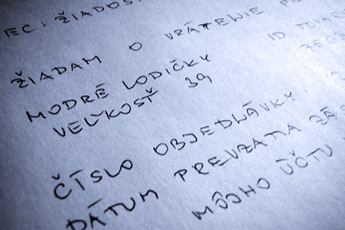 EC: ŽIADOS
ŽIADAM O VRÁTENIE
MODRÉ LODIČKY ID TOVAR
VEĽKOSŤ 39
ČÍSLO OBJEDNÁVKY:
DÁTUM PREVZATIA ZÁ
MÔJHO ÚČTU